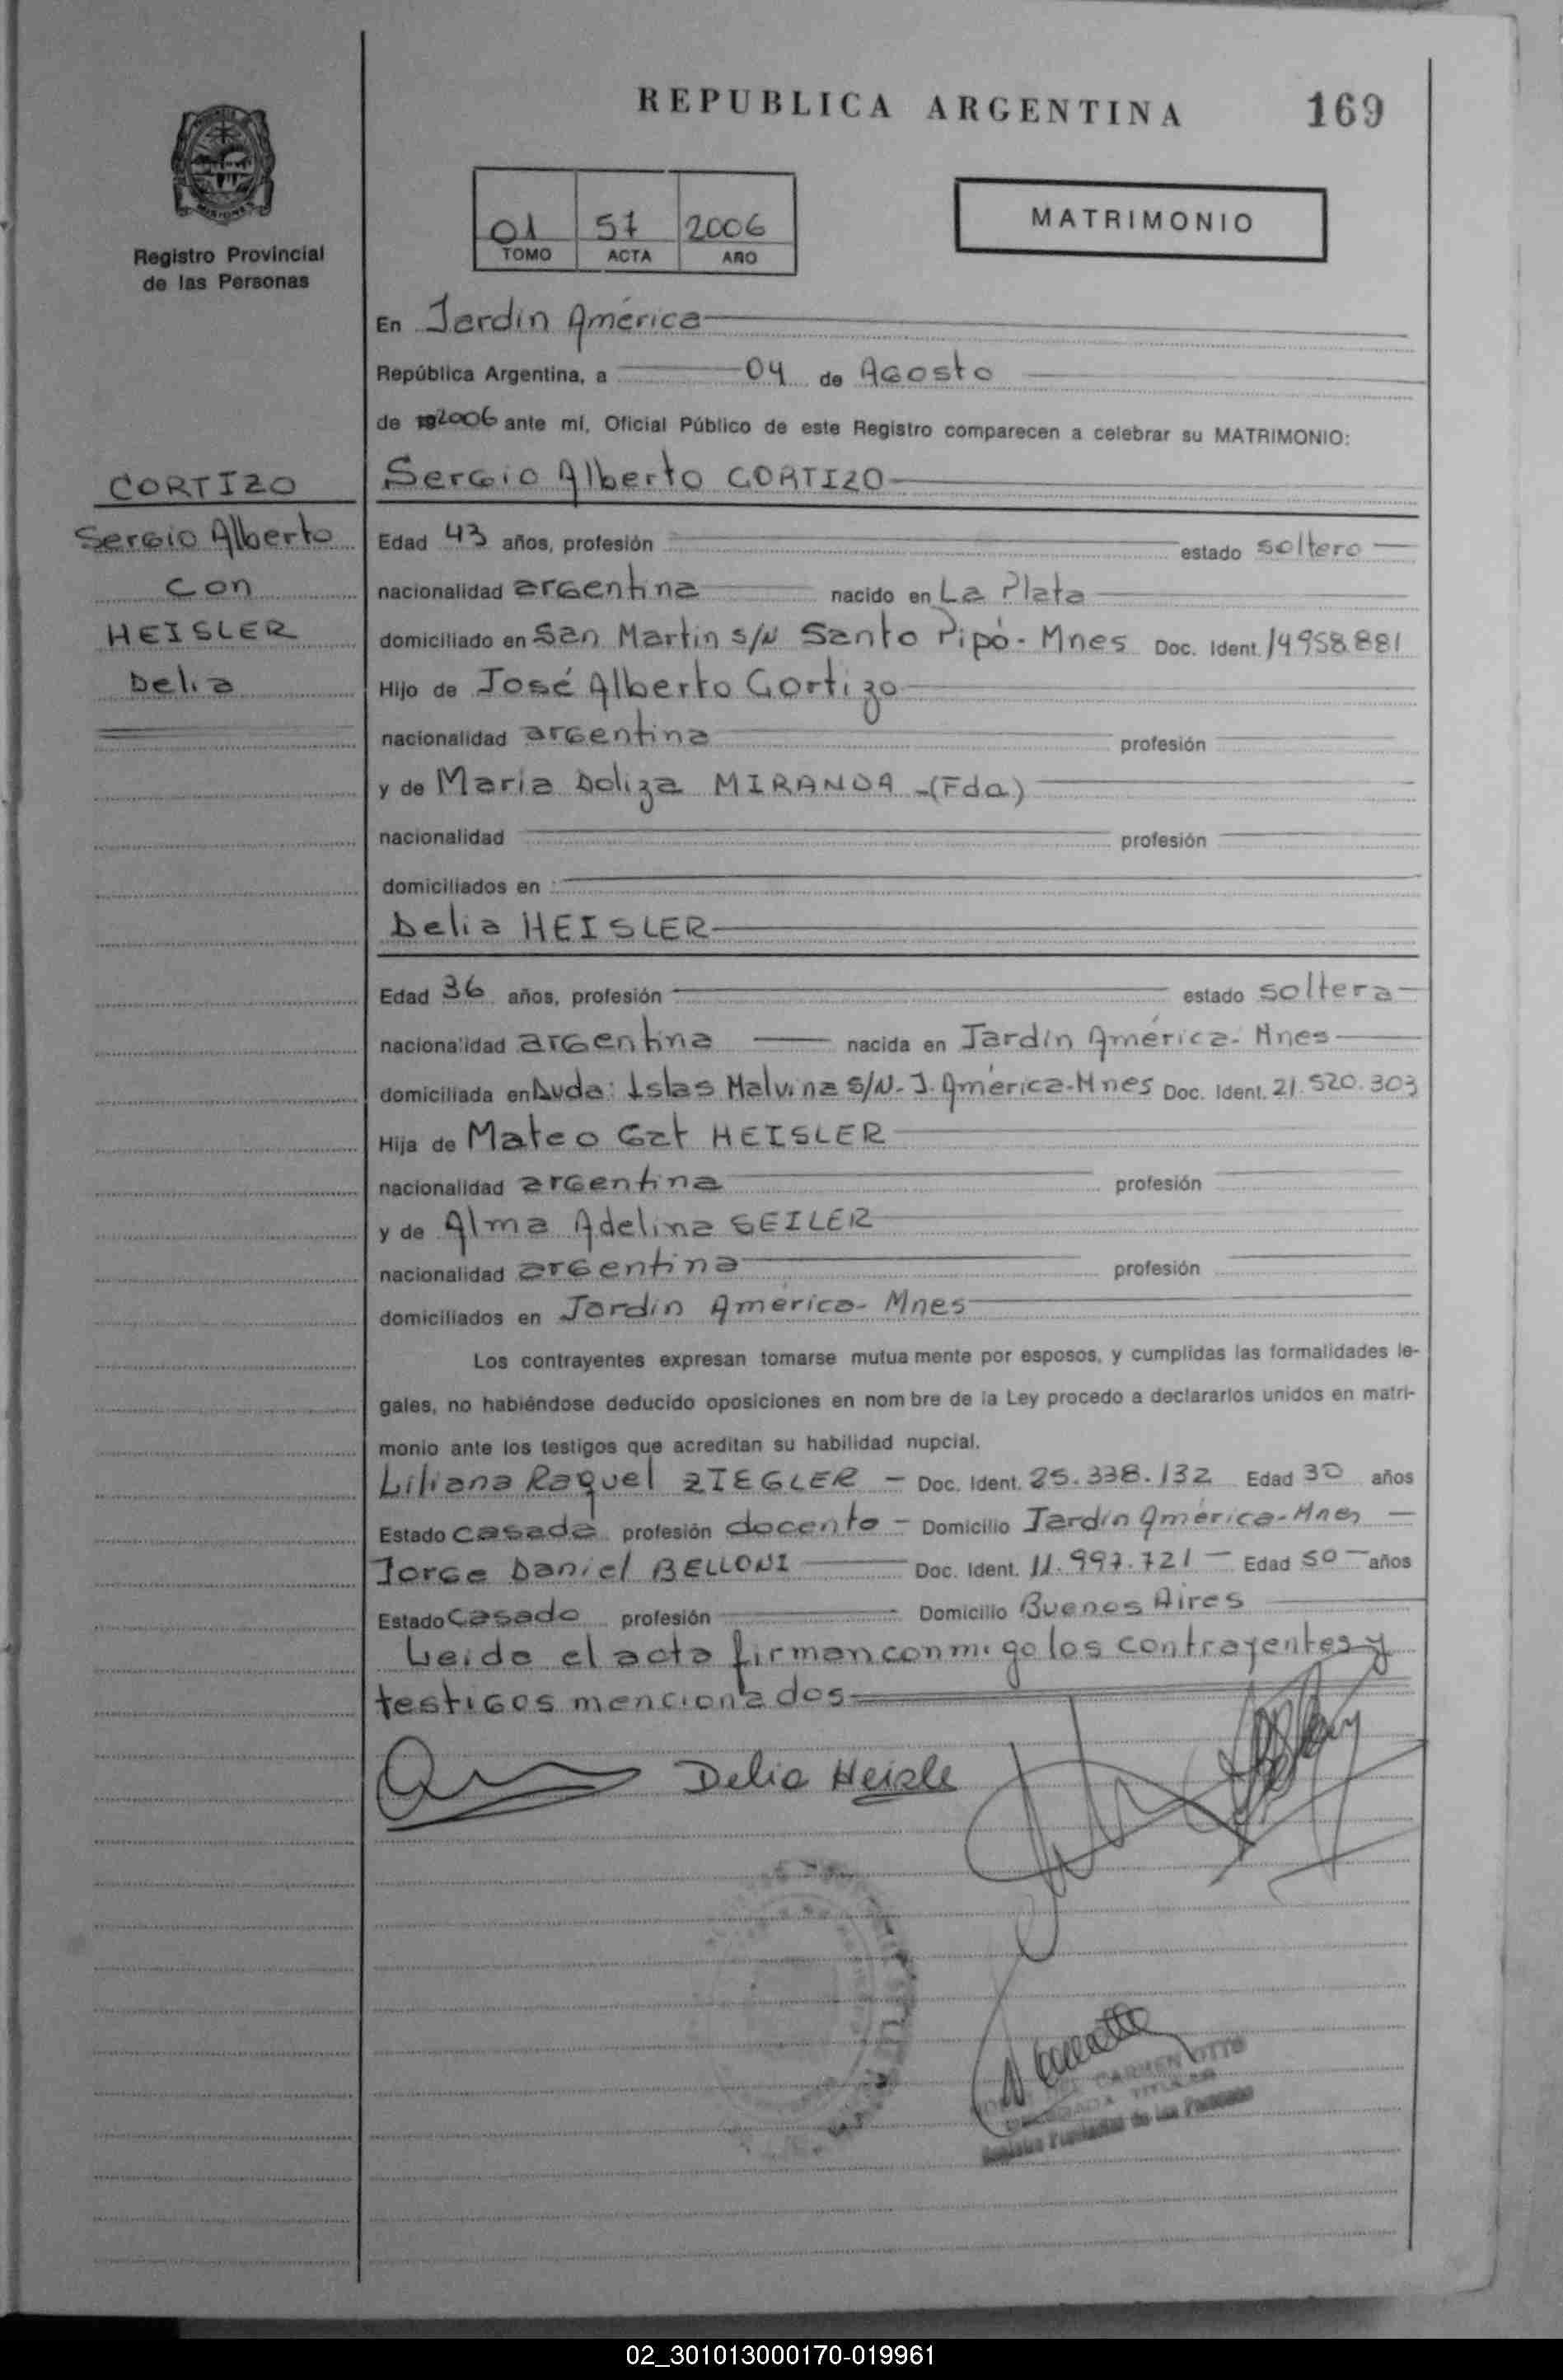 REPUBLICA ARGENTINA 169
MISIONES
Registro Provincial
de las Personas
01 57 2006
TOMO ACTA AÑO
MATRIMONIO
En Jardín América
República Argentina, a 04 de Agosto
de 2006 ante mí, Oficial Público de este Registro comparecen a celebrar su MATRIMONIO:
CORTIZO
Sergio Alberto
con
HEISLER
Delia
Sergio Alberto CORTIZO
Edad 43 años, profesión estado soltero
nacionalidad argentina nacido en La Plata
domiciliado en San Martin s/N Santo Pipó - Mnes Doc. Ident. 14958.881
Hijo de José Alberto Cortizo
nacionalidad argentina profesión
y de Maria Doliza MIRANDA -(Fda)
nacionalidad profesión
domiciliados en
Delia HEISLER
Edad 36 años, profesión estado soltera
nacionalidad argentina nacida en Jardín América - Mnes
domiciliada en Avda: Islas Malvina S/N - J. América - Mnes Doc. Ident. 21.520.303
Hija de Mateo HEISLER
nacionalidad argentina profesión
y de Alma Adelina SEILER
nacionalidad argentina profesión
domiciliados en Jardín América - Mnes
Los contrayentes expresan tomarse mutua mente por esposos, y cumplidas las formalidades le-
gales, no habiéndose deducido oposiciones en nom bre de la Ley procedo a declararlos unidos en matri-
monio ante los testigos que acreditan su habilidad nupcial.
Liliana Raquel ZIEGLER - Doc. Ident. 25.338.132 Edad 30 años
Estado casada profesión docente - Domicilio Jardín América - Mnes -
Jorge Daniel BELLONI Doc. Ident. 11.997.721 - Edad 50 - años
Estado Casado profesión Domicilio Buenos Aires
Leída el acta firman conmigo los contrayentes y
testigos mencionados
Delia Heisle
DEL CARMEN OTTO
DELEGADA TITULAR
Registro Provincial de las Personas
02_301013000170-019961